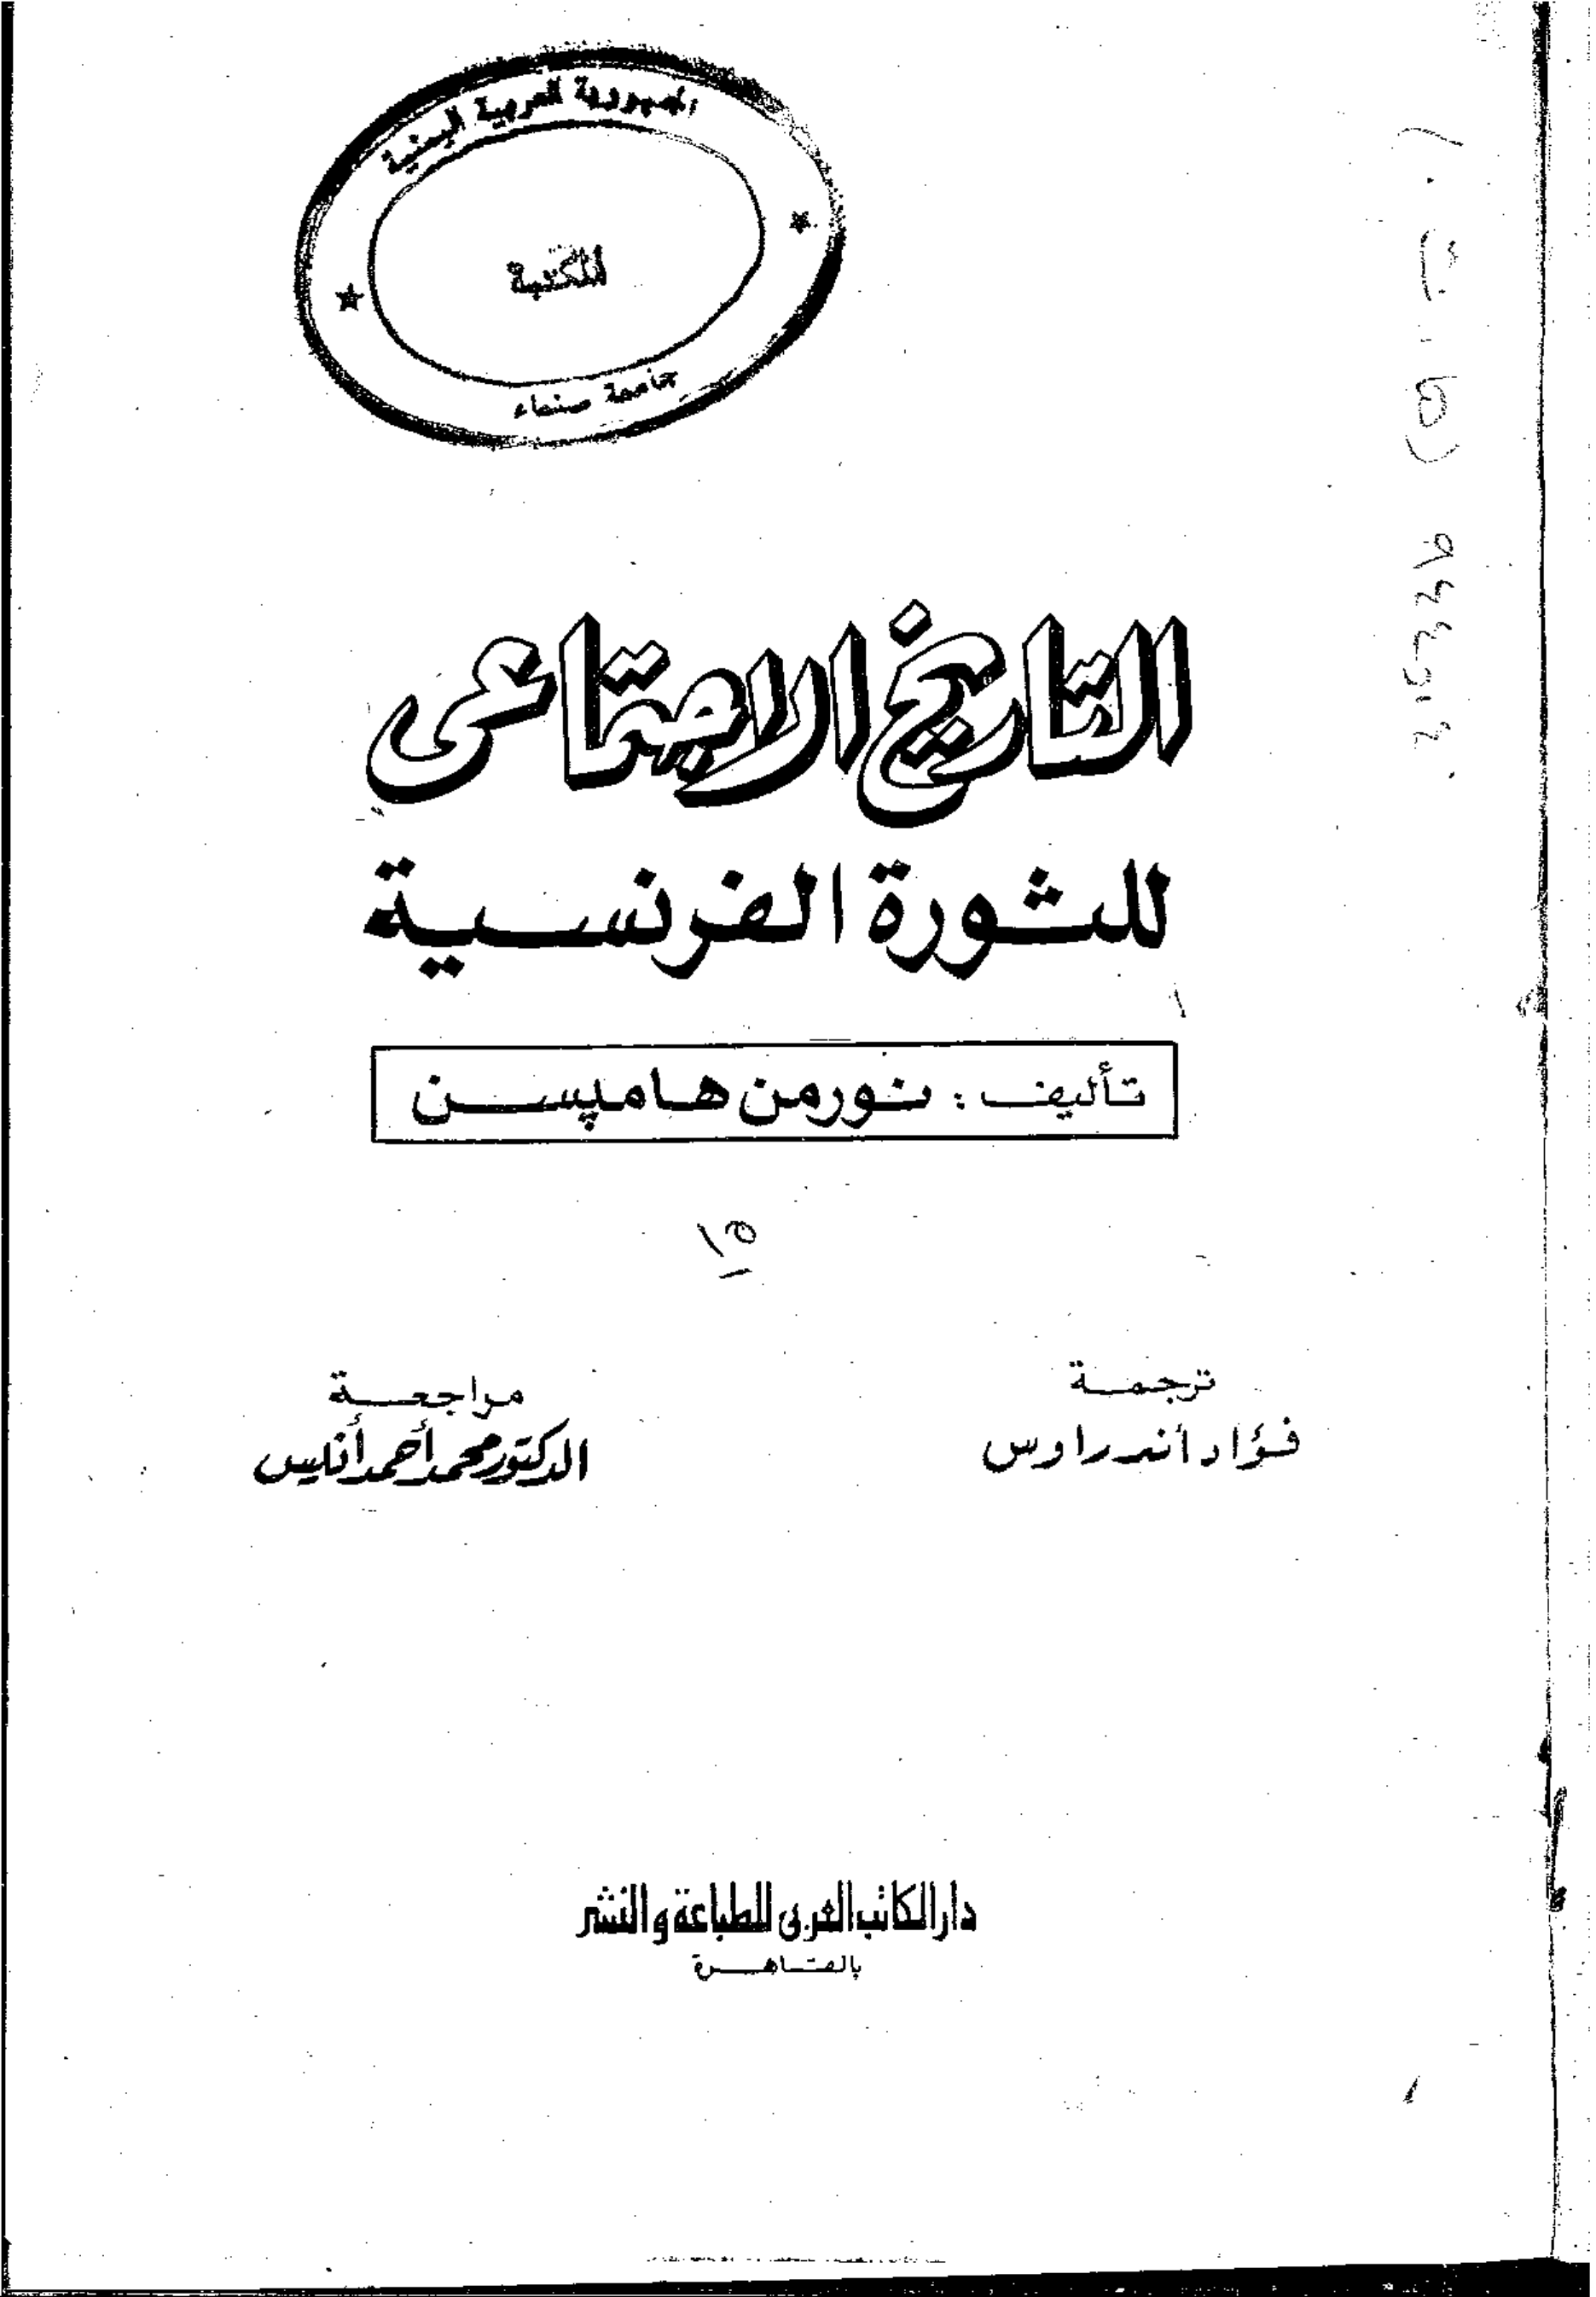 الجمهورية العربية اليمنية
المكتبة
جامعة صنعاء
التاريخ الاجتماعى
للثورة الفرنسية
تأليف : نورمن هامپسن
ترجمة
فؤاد أندراوس
مراجعة
الدكتور محمد أحمد أنيس
دار الكاتب العربى للطباعة والنشر
بالقاهرة